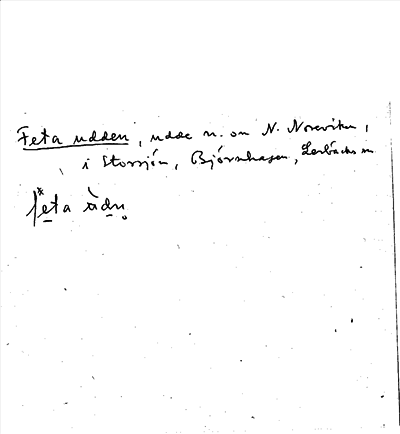 Feta udden, udde n. om N. Noreviken,
i Storsjön, Björnhagen, Lerbäcks sn
feta ùdn̥